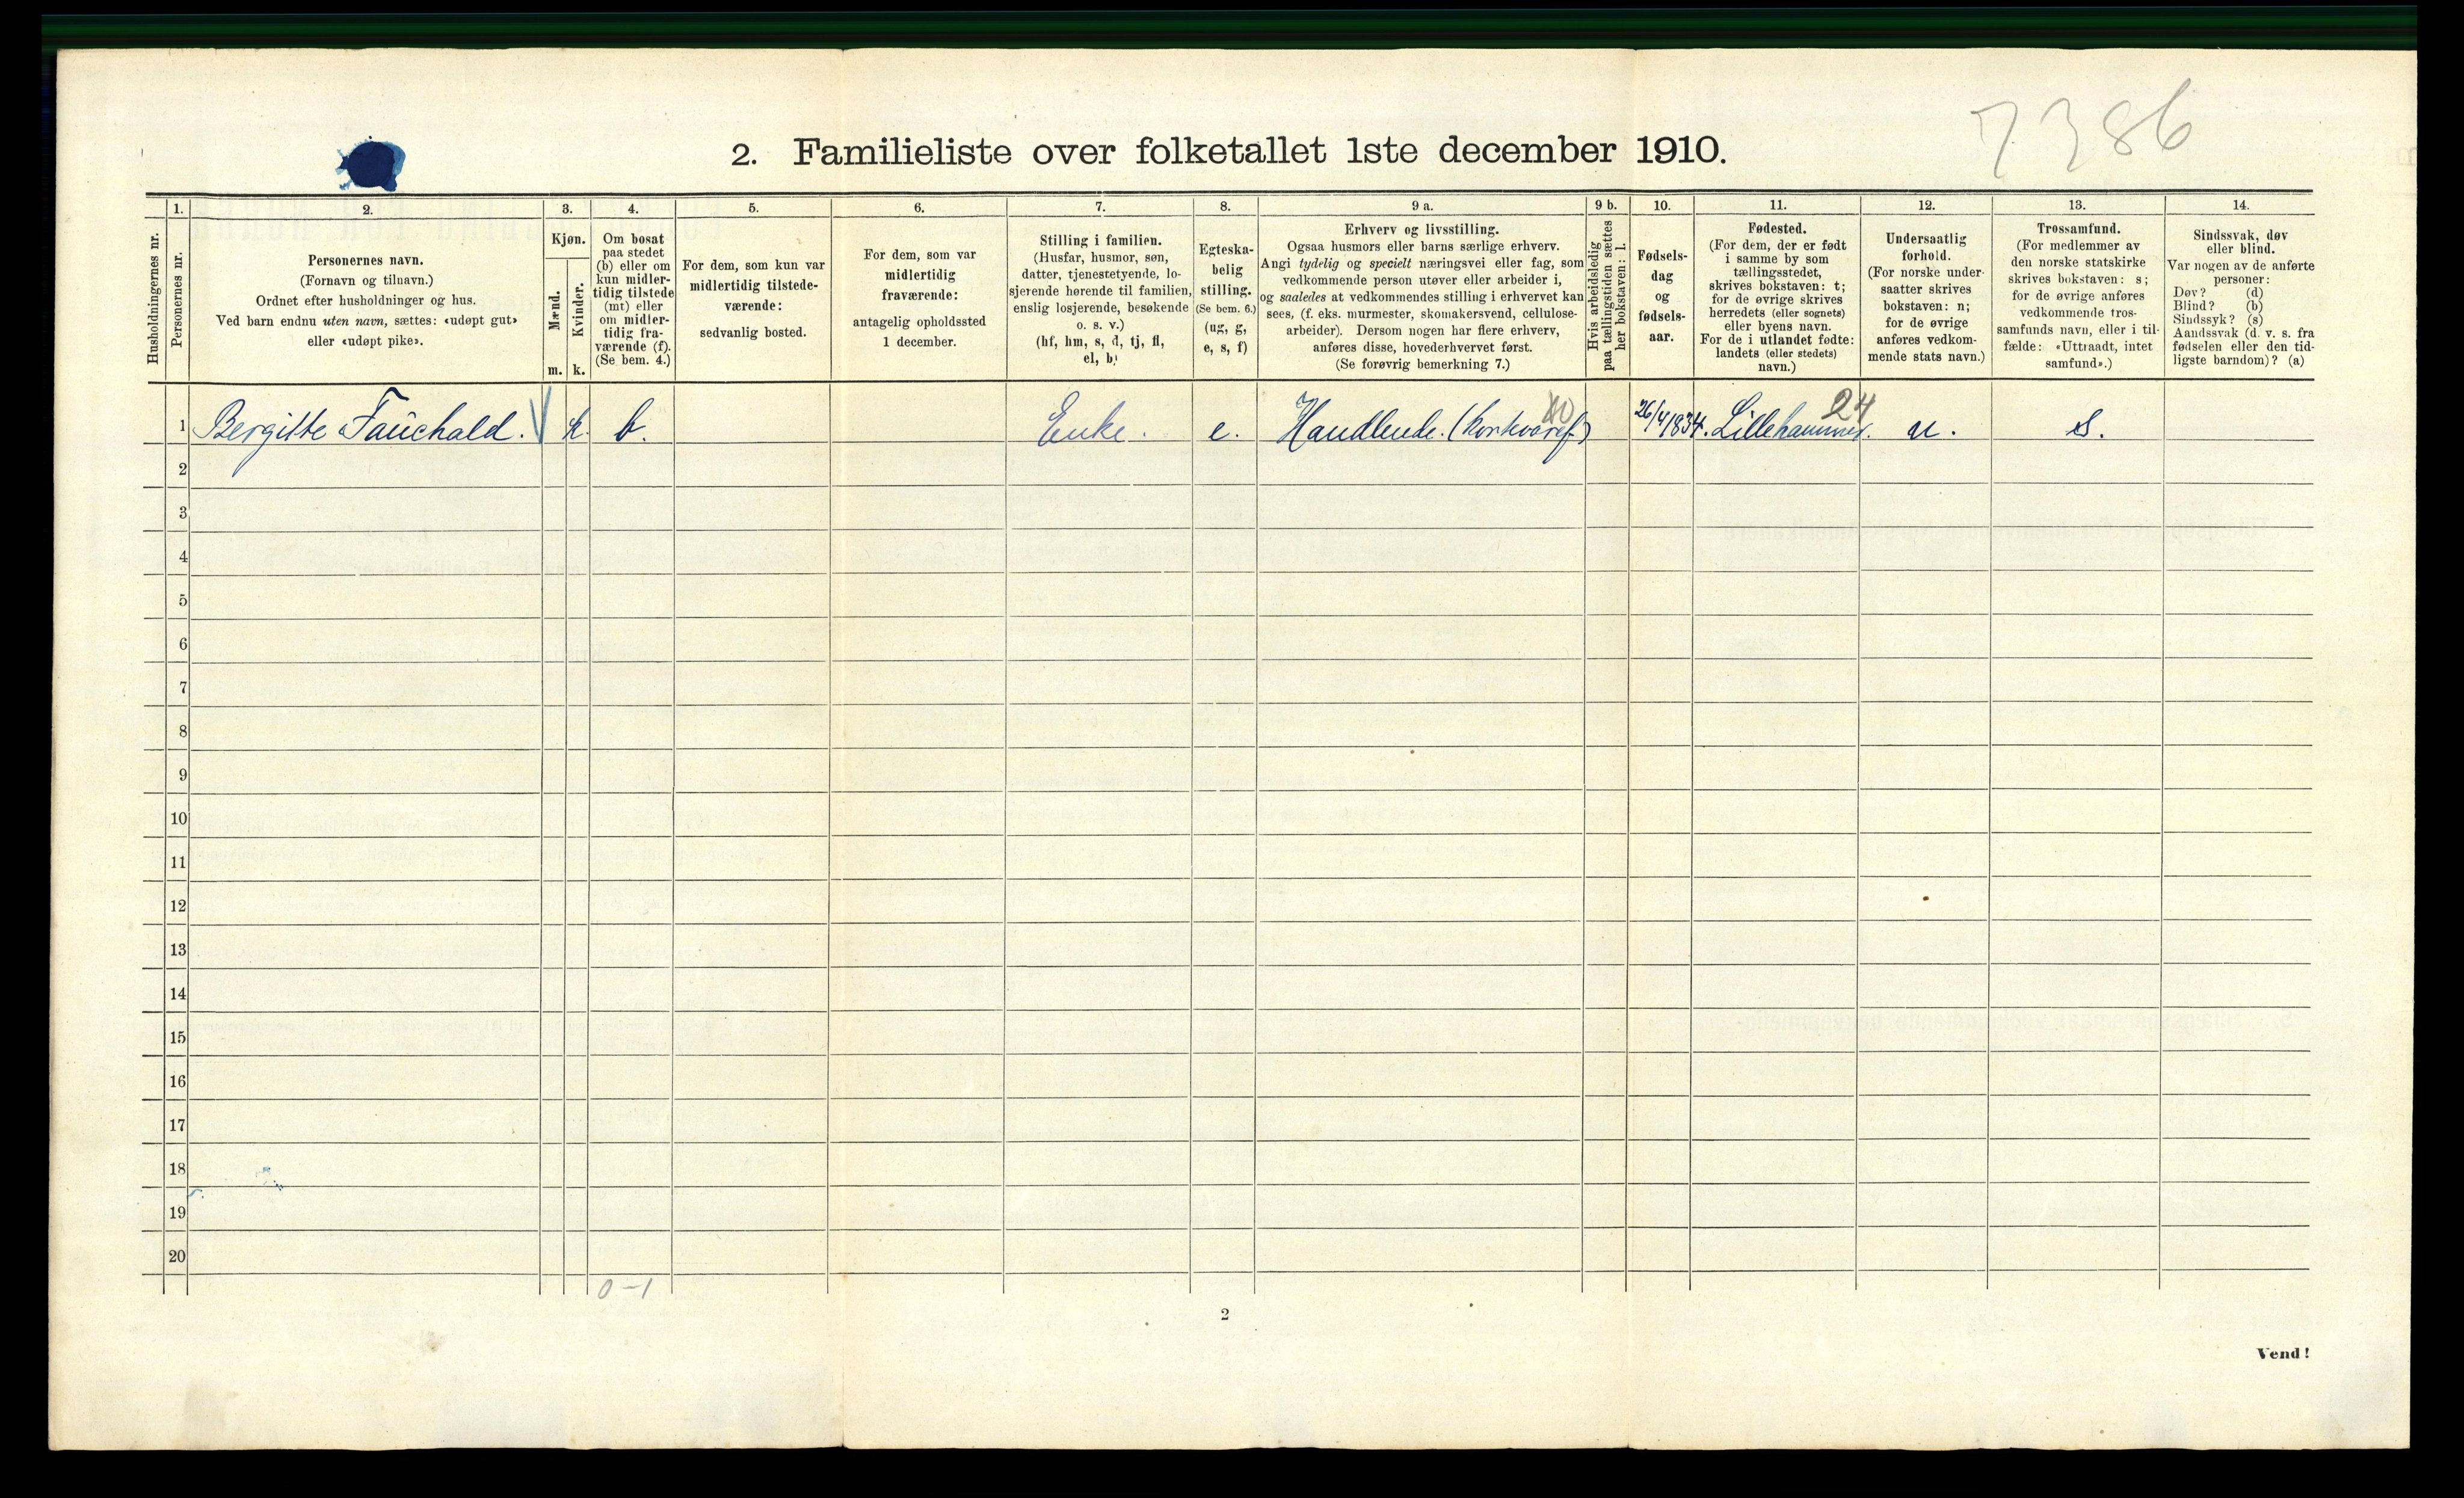 7386
2. Familieliste over folketallet 1ste december 1910.
Husholdningernes nr.
1.
Personernes nr.
2.
Personernes navn.
(Fornavn og tilnavn.)
Ordnet efter husholdninger og hus.
Ved barn endnu uten navn, sættes: «udøpt gut»
eller «udøpt pike».
3.
Kjøn.
Mænd.
Kvinder.
m. k.
4.
Om bosat
paa stedet
(b) eller om
kun midler-
tidig tilstede
(mt) eller
om midler-
tidig fra-
værende (f).
(Se bem. 4.)
5.
For dem, som kun var
midlertidig tilstede-
værende:
sedvanlig bosted.
6.
For dem, som var
midlertidig
fraværende:
antagelig opholdssted
1 december.
7.
Stilling i familien.
(Husfar, husmor, søn,
datter, tjenestetyende, lo-
sjerende hørende til familien,
enslig losjerende, besøkende
o. s. v.)
(hf, hm, s, d, tj, fl,
el, b)
8.
Egteska-
belig
stilling.
(Se bem. 6.)
(ug, g,
e, s, f)
9 a.
Erhverv og livsstilling.
Ogsaa husmors eller barns særlige erhverv.
Angi tydelig og specielt næringsvei eller fag, som
vedkommende person utøver eller arbeider i,
og saaledes at vedkommendes stilling i erhvervet kan
sees, (f. eks. murmester, skomakersvend, cellulose-
arbeider). Dersom nogen har flere erhverv,
anføres disse, hovederhvervet først.
(Se forøvrig bemerkning 7.)
9 b.
Hvis arbeidsledig
paa tællingstiden sættes
her bokstaven: l.
10.
Fødsels-
dag
og
fødsels-
aar.
11.
Fødested.
(For dem, der er født
i samme by som
tællingsstedet,
skrives bokstaven: t;
for de øvrige skrives
herredets (eller sognets)
eller byens navn.
For de i utlandet fødte:
landets (eller stedets)
navn.)
12.
Undersaatlig
forhold.
(For norske under-
saatter skrives
bokstaven: n;
for de øvrige
anføres vedkom-
mende stats navn.)
13.
Trossamfund.
(For medlemmer av
den norske statskirke
skrives bokstaven: s;
for de øvrige anføres
vedkommende tros-
samfunds navn, eller i til-
fælde: «Uttraadt, intet
samfund».)
14.
Sindssvak, døv
eller blind.
Var nogen av de anførte
personer:
Døv? (d)
Blind? (b)
Sindssyk? (s)
Aandssvak (d. v. s. fra
fødselen eller den tid-
ligste barndom)? (a)
40 24
1 Bergitte Fauchald. k. b. Enke. e. Handlende. (kortvaref.) 26/4 1834. Lillehammer. n. s.
2
3
4
5
6
7
8
9
10
11
12
13
14
15
16
17
18
19
20
0-1
2
Vend!